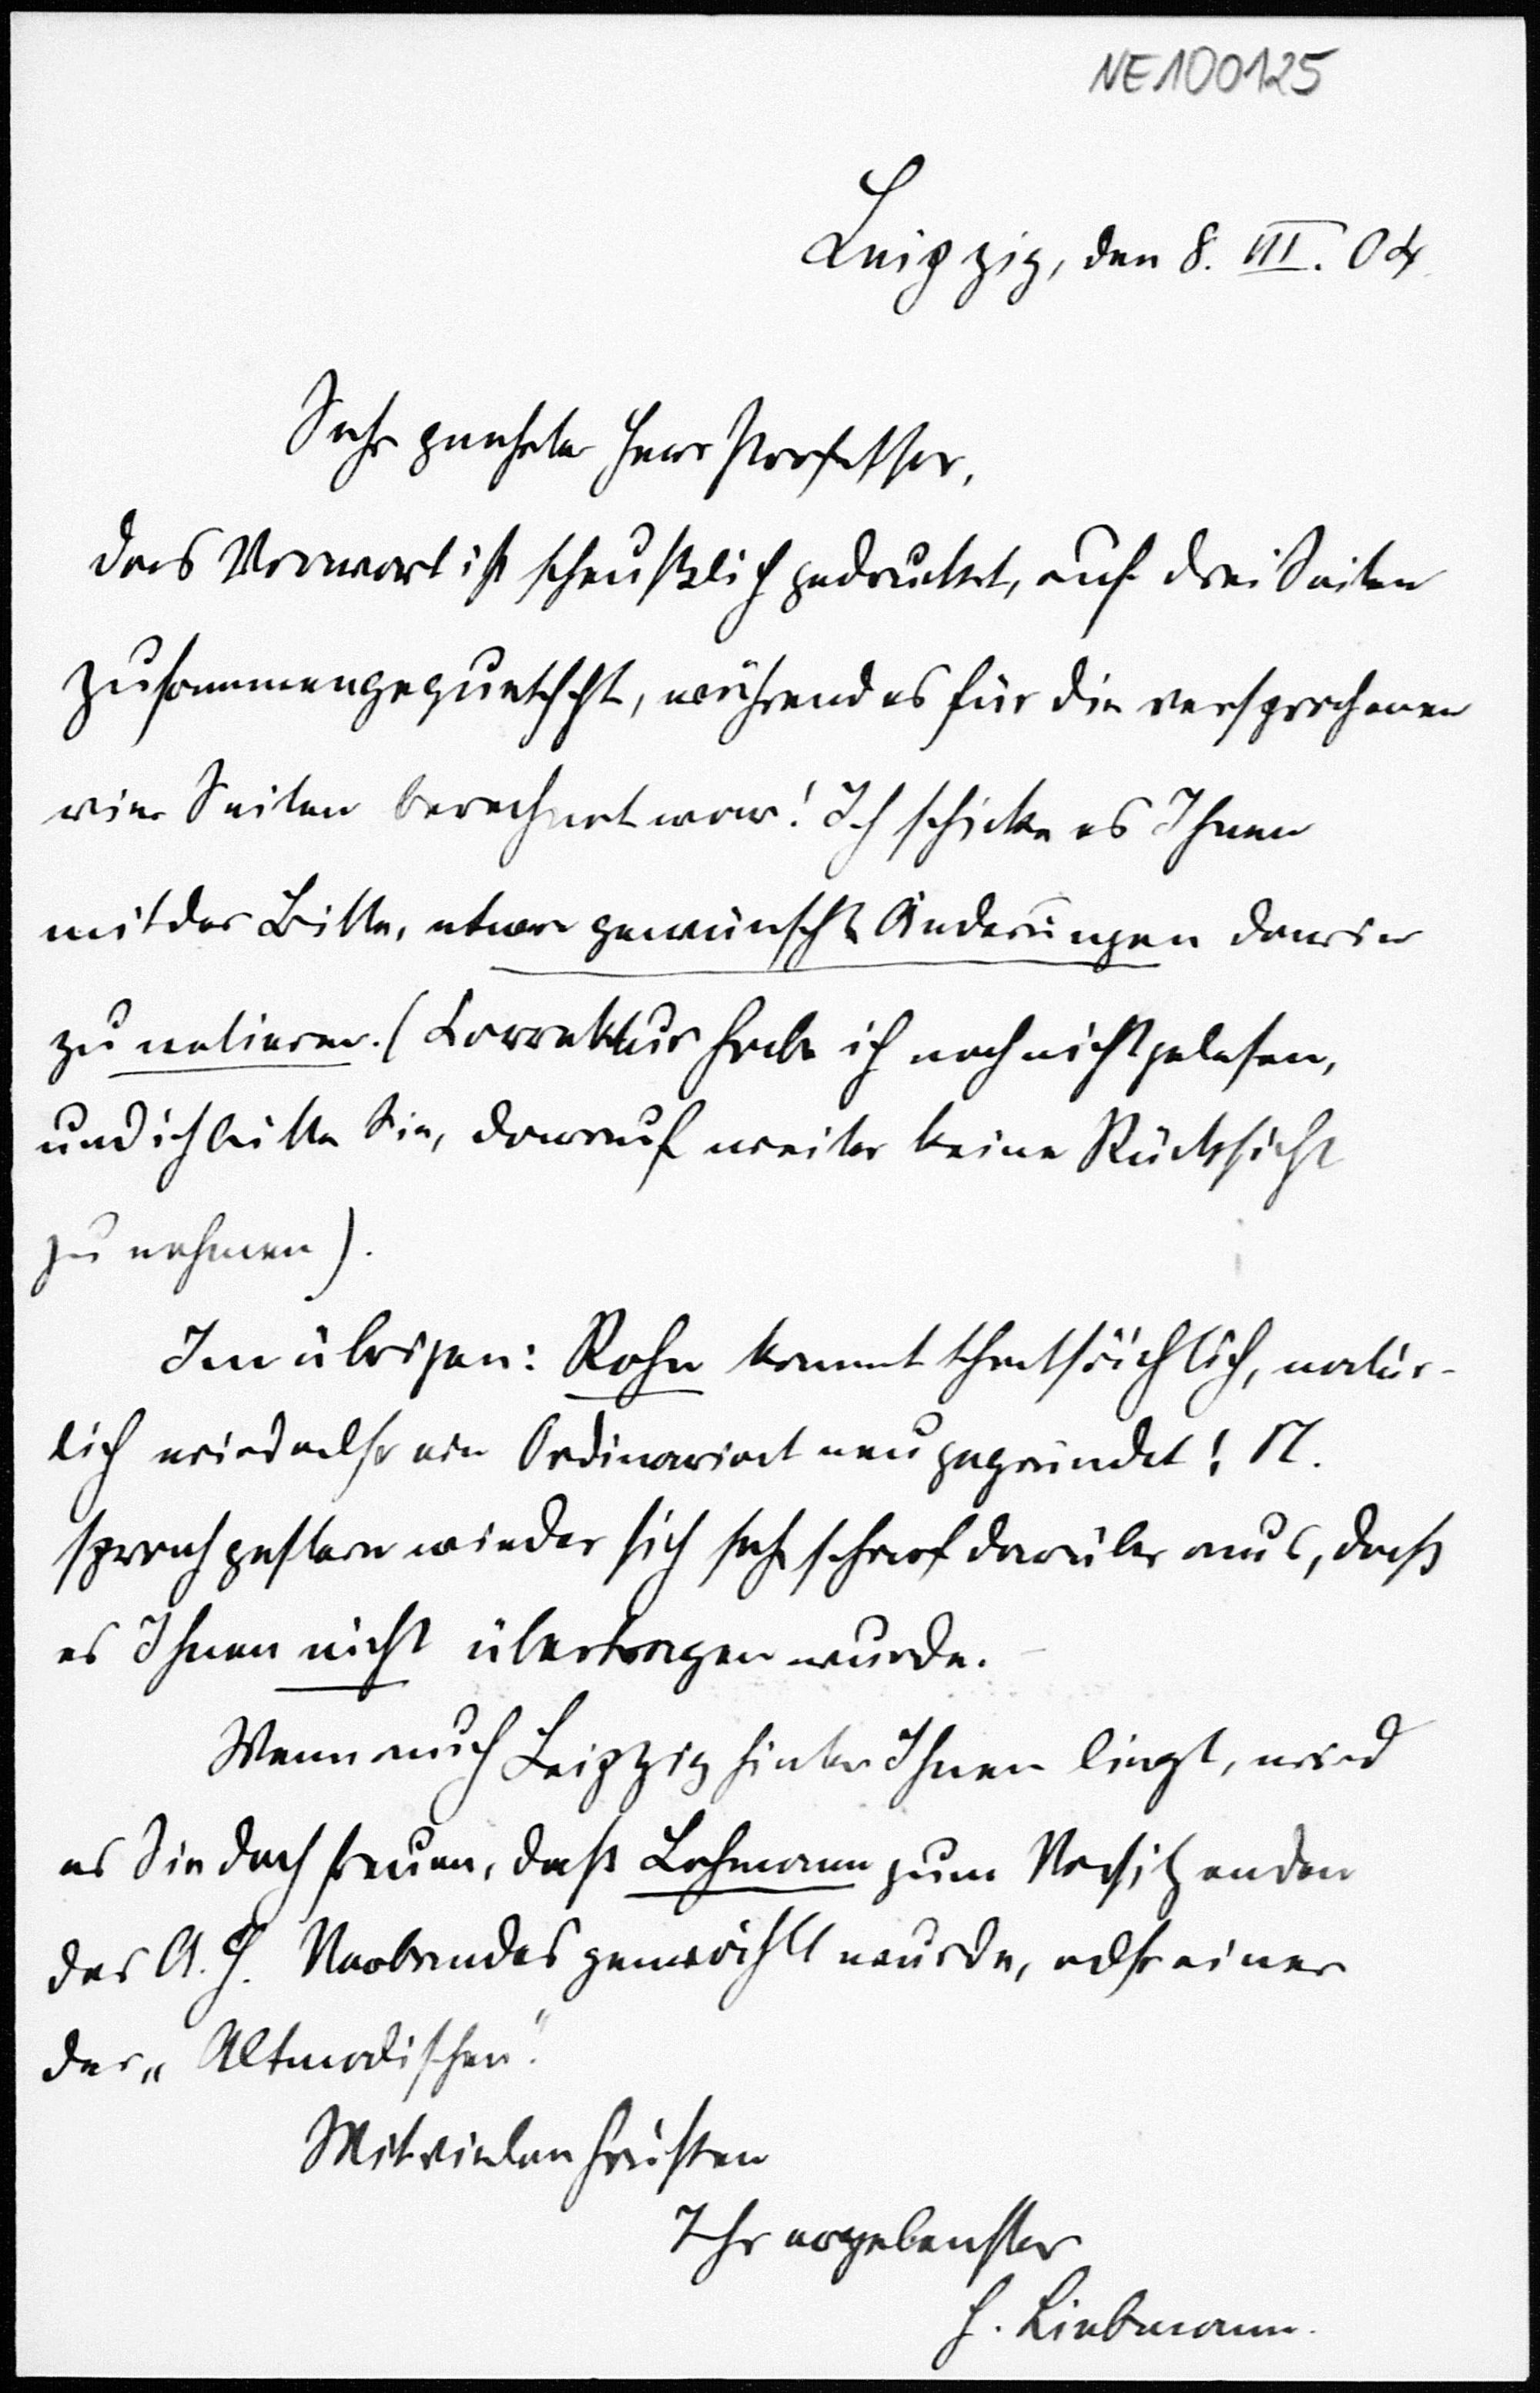 NE100125
Leipzig, den 8. III. 04.
Sehr geehrter Herr Professor,
das Vorwort ist scheußlich gedruckt, auf drei Seiten
zusammengequetscht, während es für die versprochenen
vier Seiten berechnet war! Ich schicke es Ihnen
mit der Bitte, etwa gewünschte Änderungen darin
zu notieren. (Korrektur habe ich noch nicht gelesen,
und ich bitte Sie, darauf weiter keine Rücksicht
zu nehmen).
Im übrigen: Rohn kommt thatsächlich, natür-
lich wird also ein Ordinariat neu gegründet! N.
sprach gestern wieder sich sehr scharf darüber aus, daß
es Ihnen nicht übertragen wurde.
Wenn auch Leipzig hinter Ihnen liegt, wird
es Sie doch freuen, daß Lehmann zum Vorsitzenden
des A. H. Verbandes gewählt wurde, also einer
der „Altmodischen".
Mit vielen Grüßen
Ihr ergebenster
H. Liebmann.